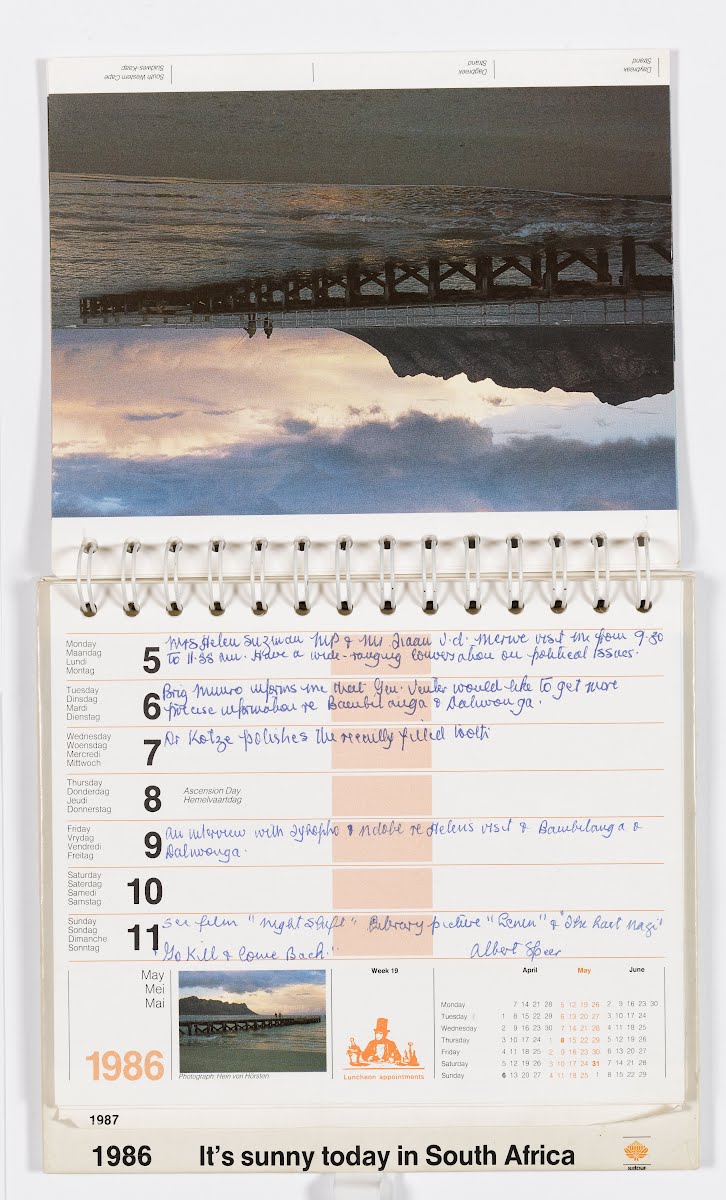 South Western Cape
Suidwes-Kaap
Daybreak
Strand
Dagbreek
Strand
Monday
Maandag
Lundi
Montag
5
Mrs Helen Suzman MP & Mr Tiaan v.d. Merwe visit me from 9.30
to 11.35 am. Have a wide-ranging conversation on political issues.
Tuesday
Dinsdag
Mardi
Dienstag
6
Brig Munro informs me that Gen. Venter would like to get more
precise information re Bambilanga & Daliwonga.
Wednesday
Woensdag
Mercredi
Mittwoch
7
Dr Kotze polishes the recently filled tooth
Thursday
Donderdag
Jeudi
Donnerstag
8
Ascension Day
Hemelvaartdag
Friday
Vrydag
Vendredi
Freitag
9
An interview with & Ndobe re Helen's visit & Bambilanga &
Daliwonga.
Saturday
Saterdag
Samedi
Samstag
10
Sunday
Sondag
Dimanche
Sonntag
11
See film "Night Shift" Library picture "Lenin" & "The Last Nazi"
"Go Kill & Come Back." Albert Speer
May
Mei
Mai
1986
Photograph: Hein von Hörsten
Week 19
Luncheon appointments
April May June
Monday 7 14 21 28 5 12 19 26 2 9 16 23 30
Tuesday 1 8 15 22 29 6 13 20 27 3 10 17 24
Wednesday 2 9 16 23 30 7 14 21 28 4 11 18 25
Thursday 3 10 17 24 1 8 15 22 29 5 12 19 26
Friday 4 11 18 25 2 9 16 23 30 6 13 20 27
Saturday 5 12 19 26 3 10 17 24 31 7 14 21 28
Sunday 6 13 20 27 4 11 18 25 1 8 15 22 29
1987
1986 It's sunny today in South Africa
satour